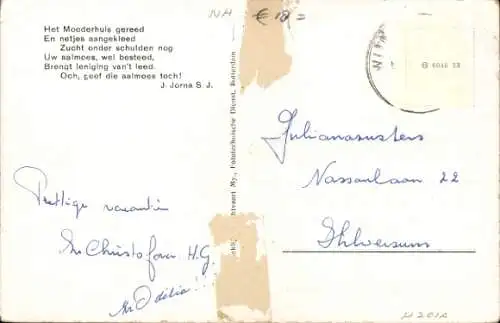 NH € 18=
Het Moederhuis gereed
En netjes aangekleed
Zucht onder schulden nog
Uw aalmoes, wel besteed,
Brengt leniging van't leed.
Och, geef die aalmoes toch!
J. Jorna S. J.
Prettige vacantie
Zr Christofora H.G.
Zr Odilia!
Fototechnische Dienst, Rotterdam
Julianazusters
Nassaulaan 22
Hilversum